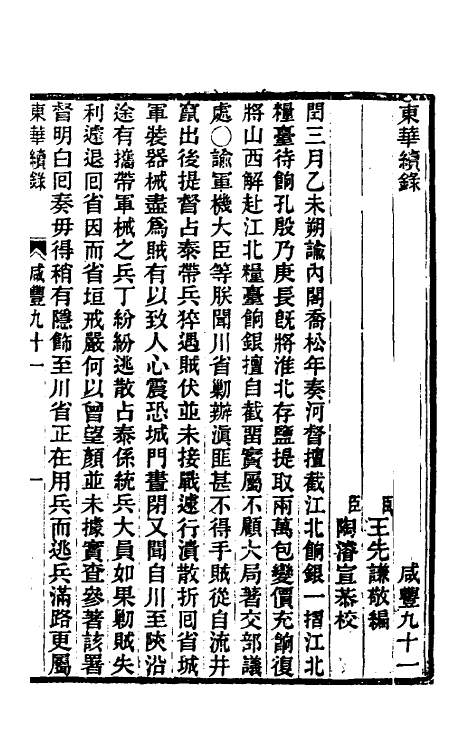 東華續錄　咸豐九十一
臣王先謙敬編
臣陶濬宣恭校
閏三月乙未朔諭內閣喬松年奏河督擅截江北餉銀一摺江北
糧臺待餉孔殷乃庚長旣將淮北存鹽提取兩萬包變價充餉復
將山西解赴江北糧臺餉銀擅自截畱實屬不顧大局著交部議
處○諭軍機大臣等朕聞川省勦辦滇匪甚不得手賊從自流井
竄出後提督占泰帶兵猝遇賊伏並未接戰遽行潰散折回省城
軍裝器械盡爲賊有以致人心震恐城門晝閉又聞自川至陝沿
途有攜帶軍械之兵丁紛紛逃散占泰係統兵大員如果勦賊失
利遽退回省因而省垣戒嚴何以曾望顏並未據實查參著該署
督明白回奏毋得稍有隱飾至川省正在用兵而逃兵滿路更屬
東華續錄　咸豐九十一　一